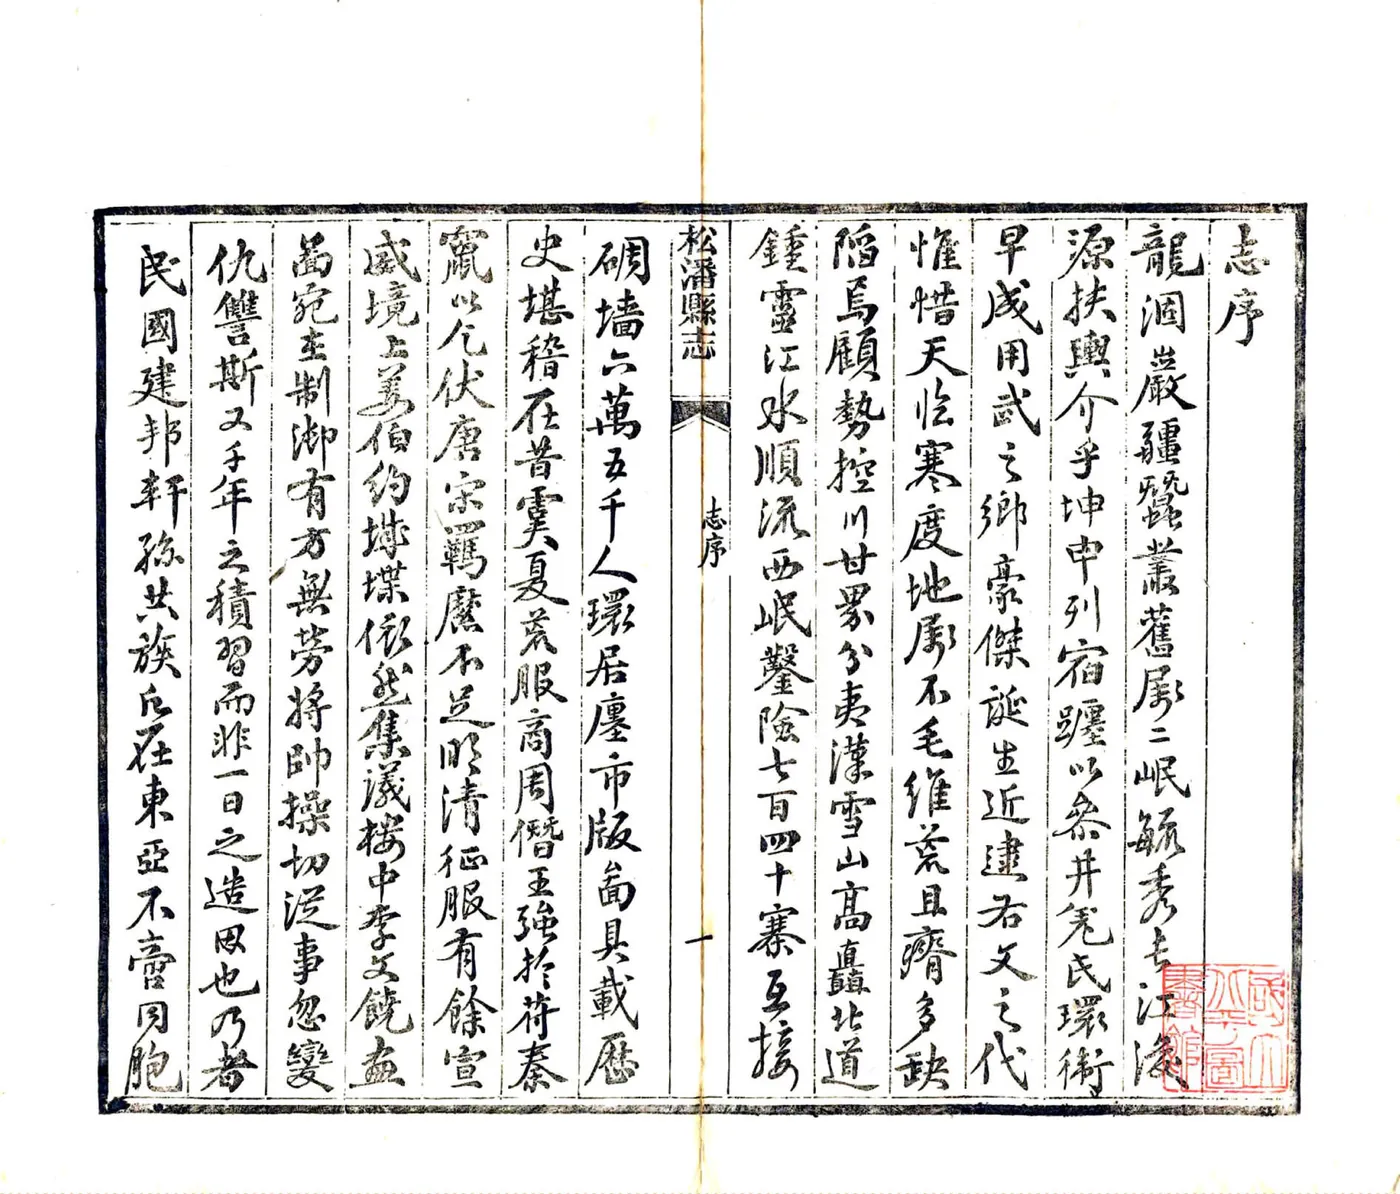 志序
龍涸巖疆蠶叢舊屬二岷毓秀長江濬
源扶輿介乎坤申列宿躔以參井羌氏環衛
早成用武之鄉豪傑誕生近逮右文之代
惟惜天臨寒度地屬不毛維荒且瘠多缺
陷焉顧勢控川甘界分夷漢雪山高矗北道
鍾靈江水順流西岷鑿險七百四十寨互接
松潘縣志
志序
一
碉墻六萬五千人環居廛市版圖具載歷
史堪稽在昔虞夏荒服商周僭王強於苻秦
竄以乞伏唐宋羈縻不足明清征服有餘宣
威境上姜伯約城堞依然集議樓中李文饒畫
圖宛在制御有方無勞將帥操切從事忽變
仇讐斯又千年之積習而非一日之造因也乃者
民國建邦軒孫共族氐在東亞不啻同胞